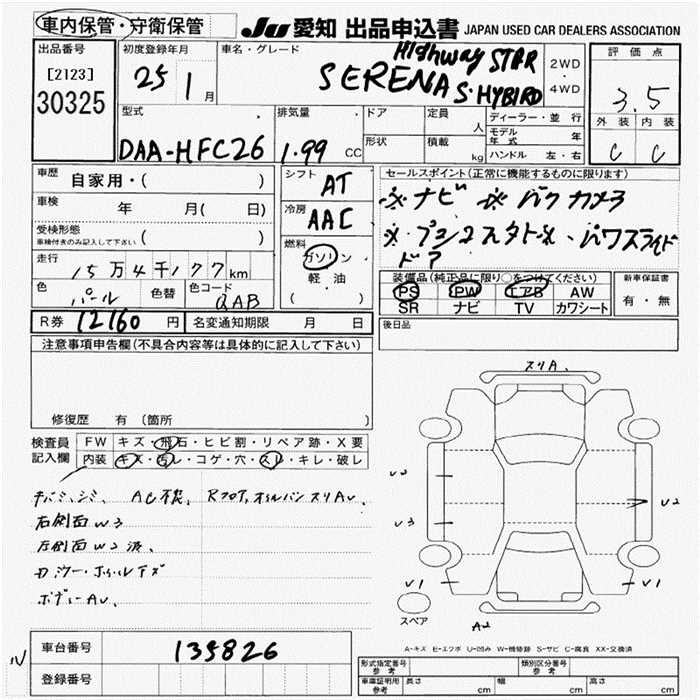 車内保管・守衛保管
JU 愛知 出品申込書 JAPAN USED CAR DEALERS ASSOCIATION
出品番号
[2123]
30325
初度登録年月
25 1 月
車名・グレード
Highway STAR
SERENA S・HYBIRD
2WD
・
4WD
評価点
3.5
外装 内装
C C
型式
DAA-HFC26
排気量
1.99 CC
ドア
定員 人
形状
積載 kg
ディーラー・並行
モデル年式 年
ハンドル 左・右
車歴
自家用・( )
車検 年 月( 日)
受検形態
車検付きのみ記入して下さい ( )
走行
15万4千177km
色
パール
色替
色コード
QAB
R券 12160 円
名変通知期限 月 日
シフト
AT
冷房
AAC
燃料
ガソリン
軽・油
( )
セールスポイント(正常に機能するものに限ります)
※ナビ ※バックカメラ
※プッシュスタート※、パワスライド
ドア
装備品(純正品に限り○をつけてください)
PS PW エアB AW
SR ナビ TV カワシート
新車保証書
有・無
後日品
注意事項申告欄(不具合内容等は具体的に記入して下さい)
修復歴 有 (箇所 )
検査員
記入欄
FW キズ・飛石・ヒビ割・リペア跡・X要
内装 キズ・汚レ・コゲ・穴・スレ・キレ・破レ
右側面W3
左側面W2済、
ボデーAU、
スリA.
U2
U3
U2
U1
U1
A2
スペア
A-キズ E-エクボ U-凹み W-補修跡 S-サビ C-腐食 XX-交換済
車台番号 135826
登録番号
形式指定番号
参考
類別区分番号
参考
車庫証明用
参考
長さ cm
幅 cm
高さ cm